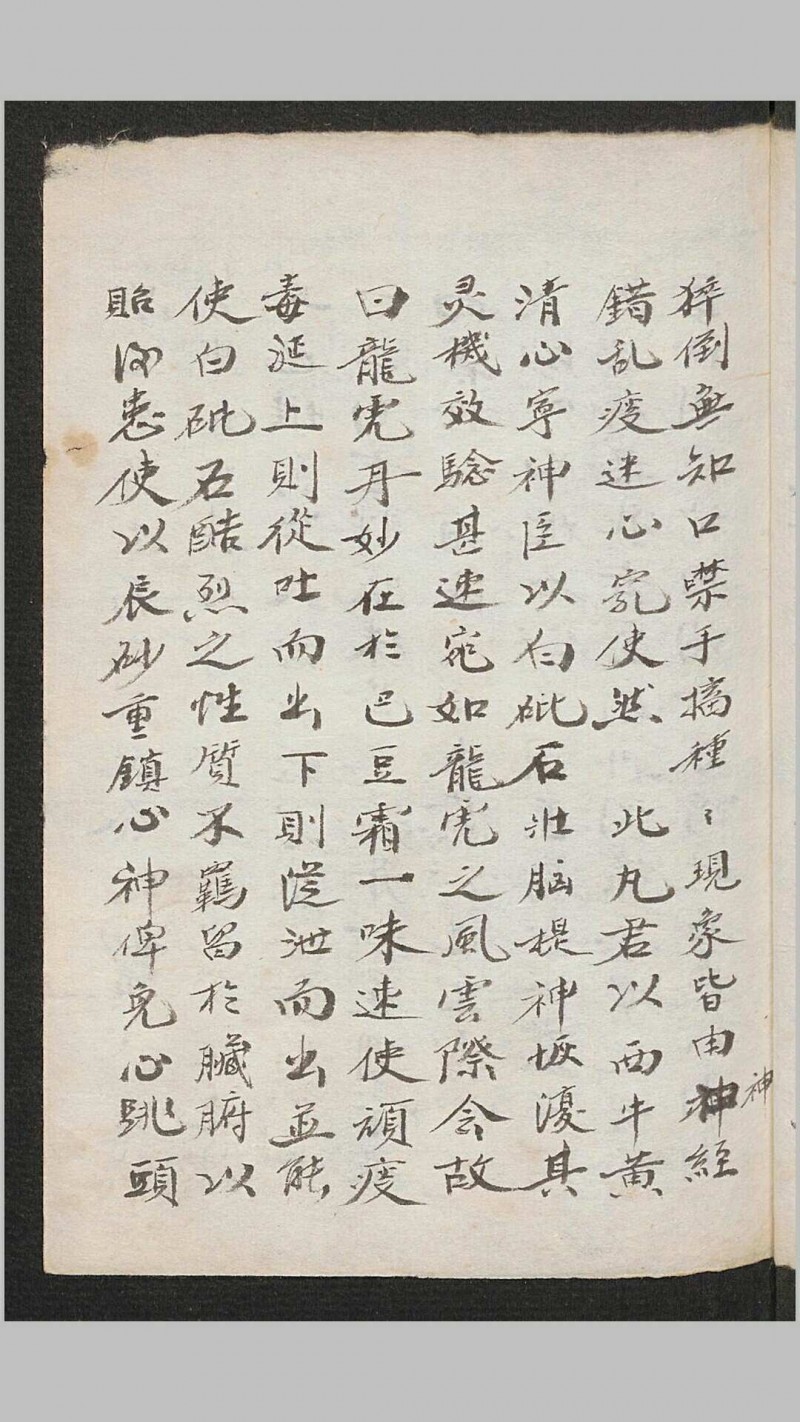 猝倒無知口噤手搐種〻現象皆由神經
神
錯乱痰迷心竅使然　此丸君以西牛黄
清心寧神臣以白砒石壮脑提神恢復其
灵機效騐甚速宛如龍虎之風雲際会故
曰龍虎丹妙在於巴豆霜一味速使頑痰
毒涎上則從吐而出下則從泄而出並能
使白砒石酷烈之性質不羈留於臟腑以
貽後患使以辰砂重鎮心神俾免心跳頭